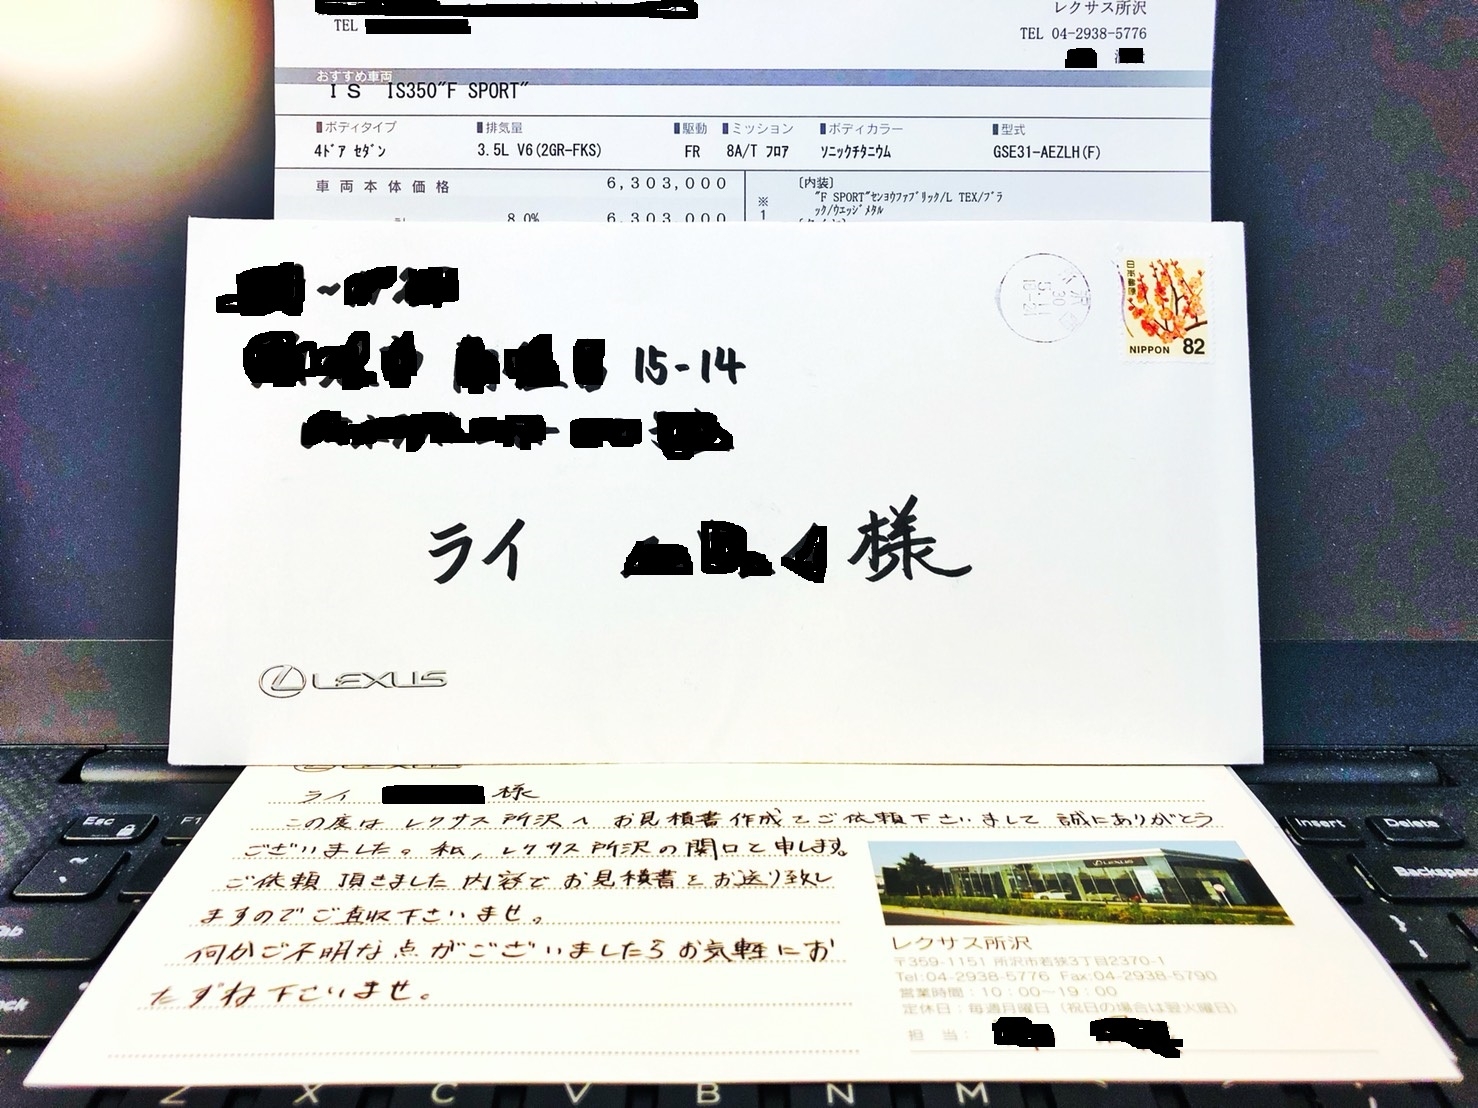 レクサス所沢
TEL
TEL 04-2938-5776
おすすめ車両
ＩＳ IS350"F SPORT"
ボディタイプ 排気量 駆動 ミッション ボディカラー 型式
4ﾄﾞｱ ｾﾀﾞﾝ 3.5L V6(2GR-FKS) FR 8A/T ﾌﾛｱ ｿﾆｯｸﾁﾀﾆｳﾑ GSE31-AEZLH(F)
車両本体価格 6,303,000 〔内装〕
※ "F SPORT"ｾﾝﾖｳﾌｧﾌﾞﾘｯｸ/L TEX/ﾌﾞﾗ
1 ｯｸ/ｳｪｯｼﾞﾒﾀﾙ
8.0% 6,303,000
日本郵便
NIPPON 82
15-14
ライ 様
LEXUS
ライ 様
この度は レクサス所沢へ お見積書作成をご依頼下さいまして 誠にありがとう
ございました。私、レクサス所沢の関口と申します。
ご依頼 頂きました 内容で お見積書を お送り致し
ますのでご査収下さいませ。
何かご不明な点がございましたらお気軽にお
たずね下さいませ。
LEXUS
レクサス所沢
〒359-1151 所沢市若狭3丁目2370-1
Tel:04-2938-5776 Fax:04-2938-5790
営業時間：10：00～19：00
定休日：毎週月曜日（祝日の場合は翌火曜日）
担 当：
Esc F1 Insert Delete
~ Backspace
}
]
Z X C V B N M